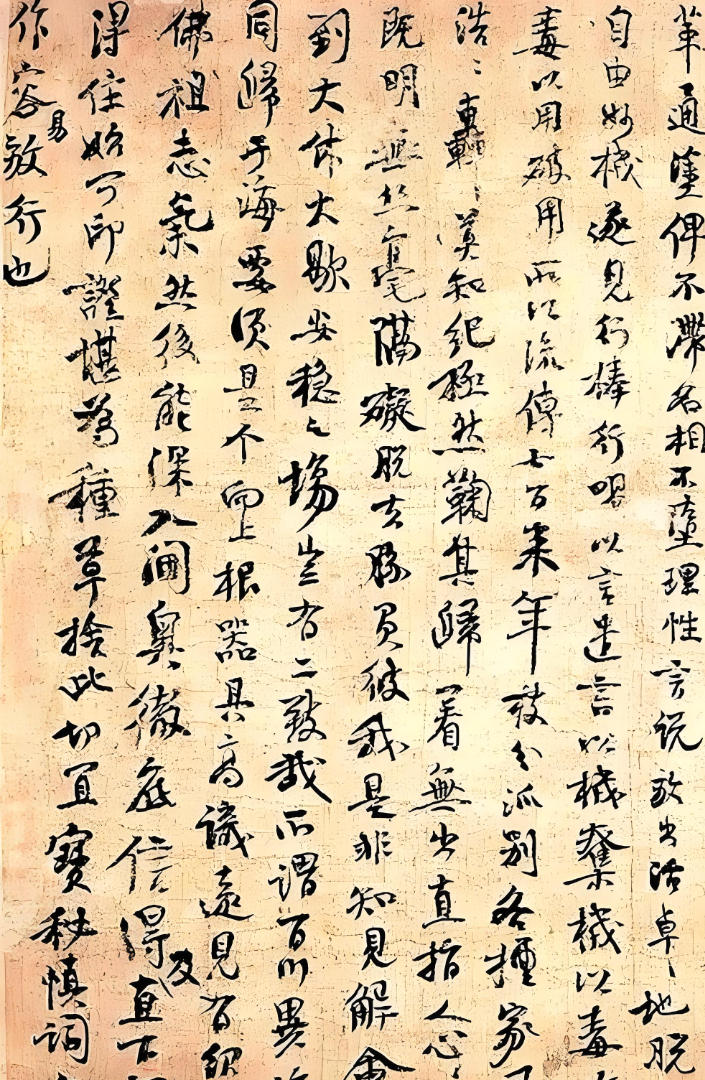 革通塗俾不滯名相不墮理性言説放出活卓〻地脱
自由妙機遂見行棒行喝以言遣言以機奪機以毒
毒以用破用所以流傳七百来年枝分派别各擅家
浩〻轟〻莫知紀極然鞠其歸着無出直指人心〻
既明無絲毫隔礙脱去勝負彼我是非知見解會
到大休大歇安穩之場豈有二致哉所謂百川異
同歸于海要須是个向上根器具高識遠見有紹
佛祖志氣然後能深入閫奥徹底信得及直下
得住始可印證堪為種草捨此切宜寶秘慎詞
作容易放行也